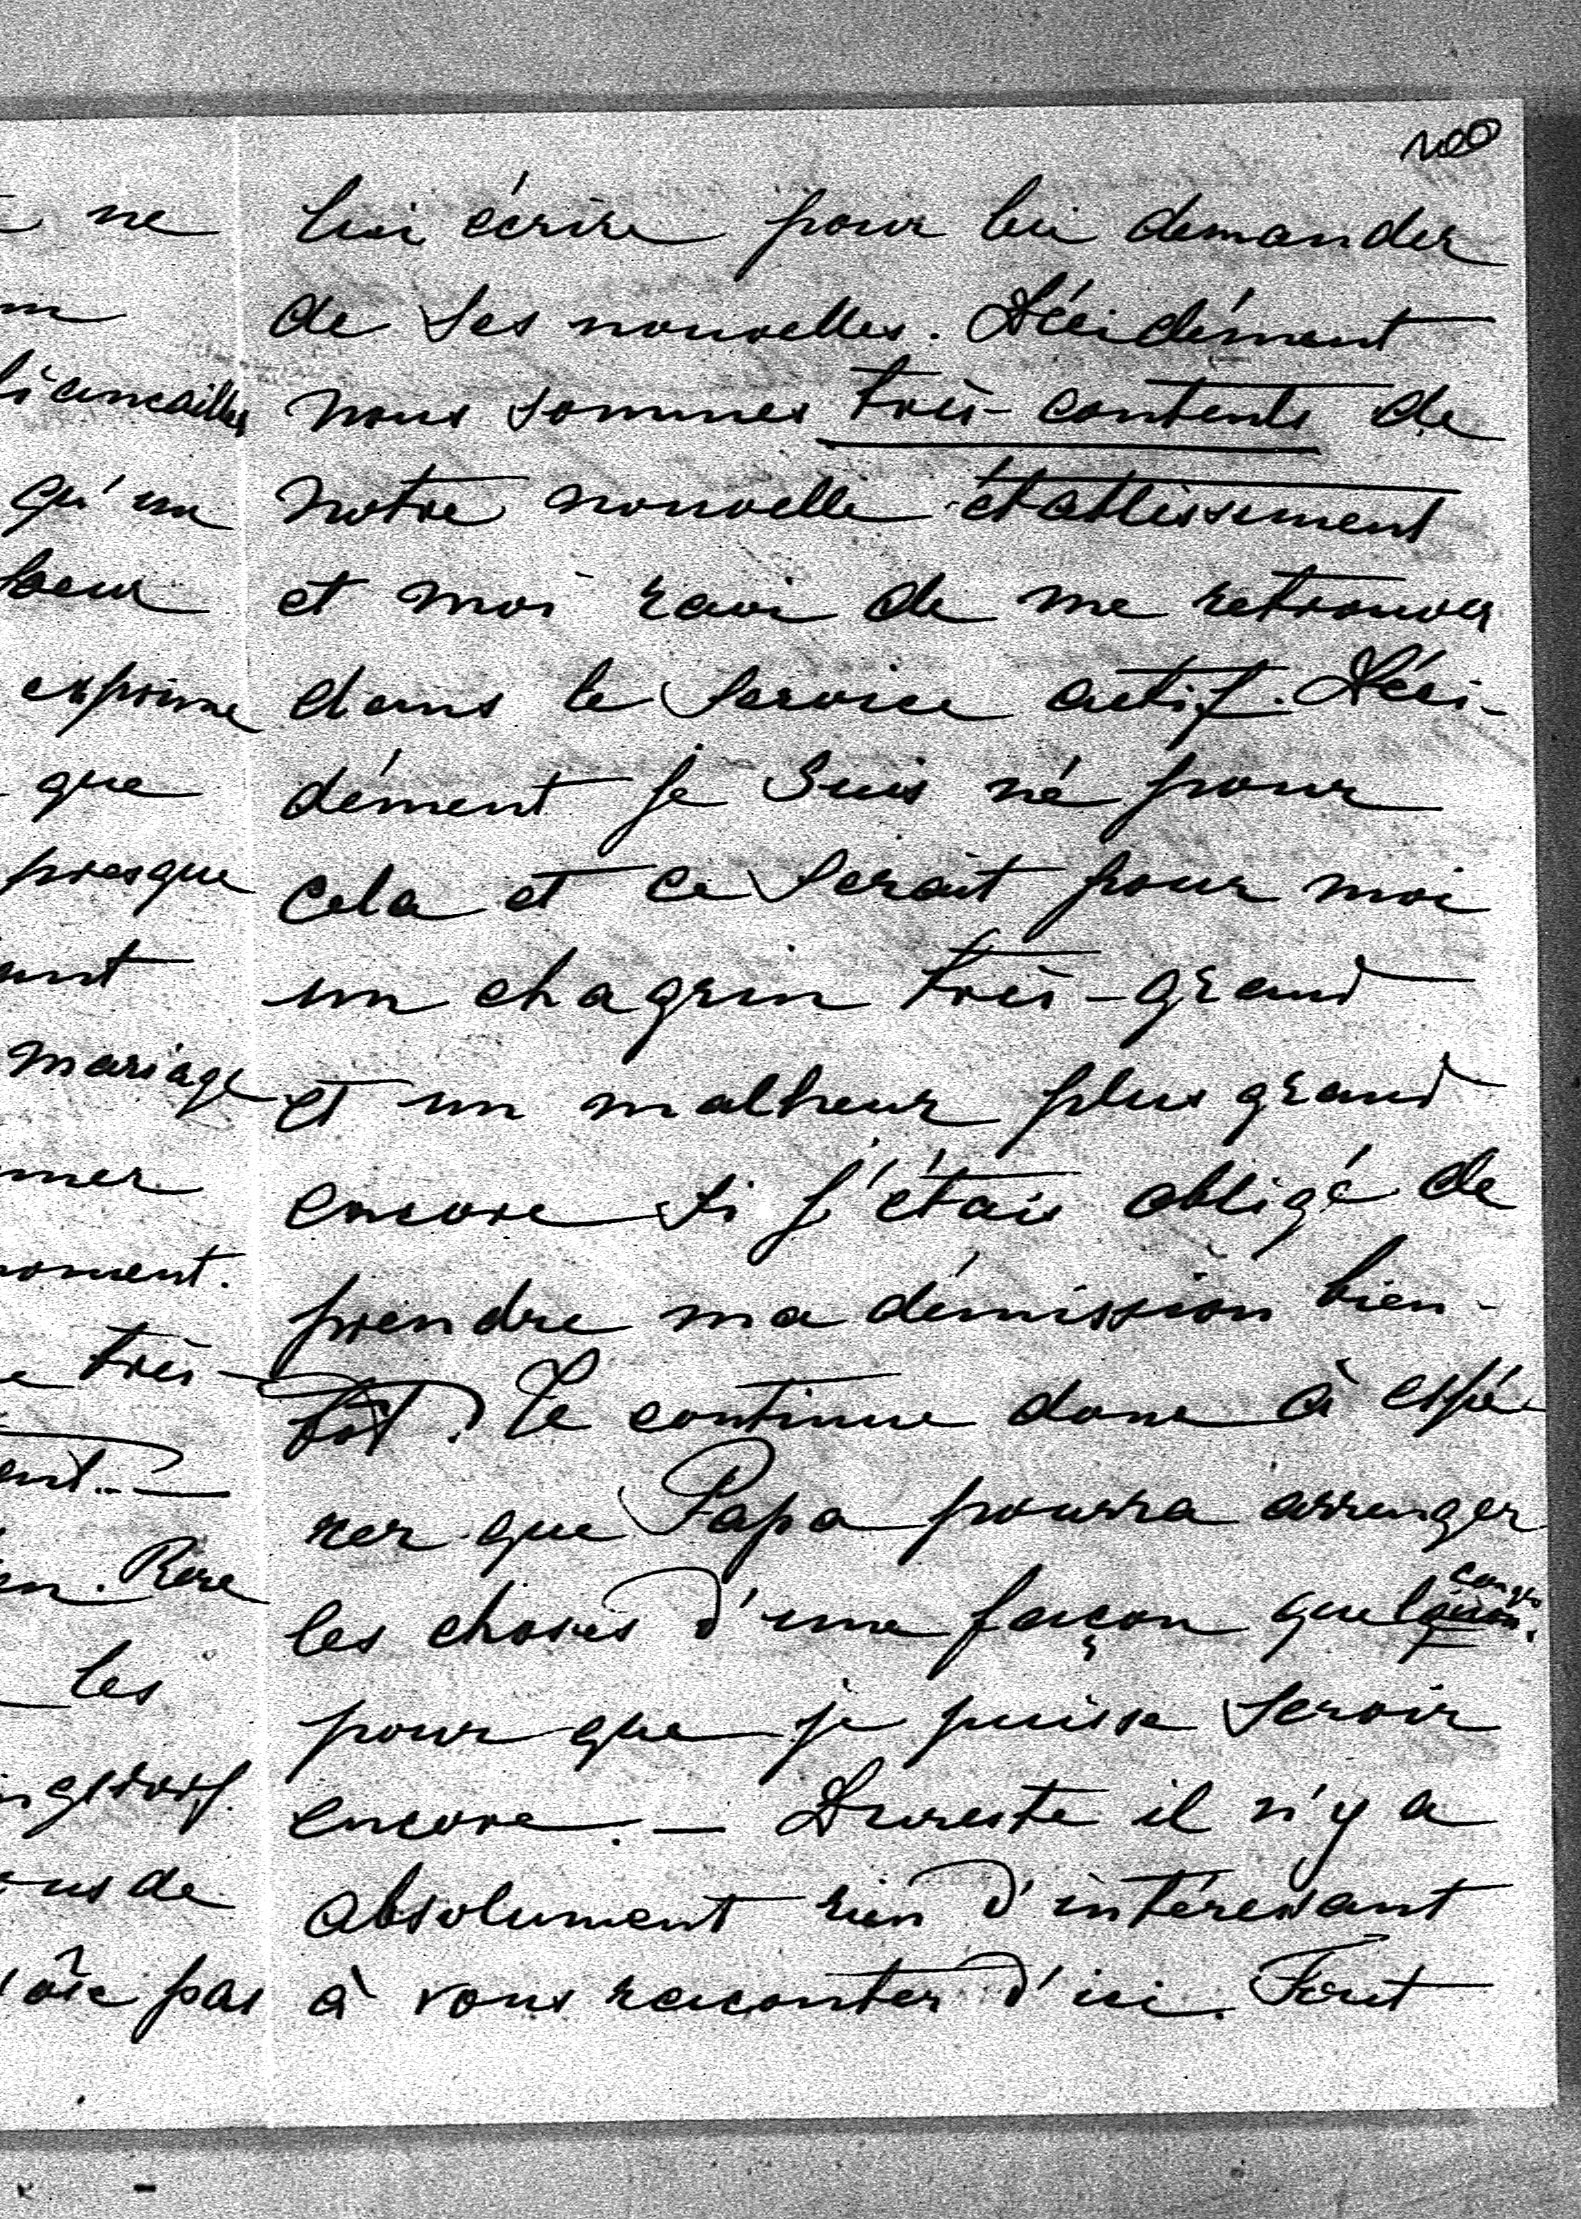 200
lui écrire pour lui demander
de ses nouvelles. Décidément
nous sommes très-contents de
notre nouvelle établissement
et moi ravi de me retrouver
dans le service actif. Déci-
dément je suis né pour
cela et ce serait pour moi
un chagrin très-grand
et un malheur plus grand
encore si j'étais obligé de
prendre ma démission bien-
tôt. Je continue donc à espé-
rer que Papa pourra arranger
les choses d'une façon quelconque
pour que je puisse servir
encore. — Dureste il n'y a
absolument rien d'intéressant
à vous raconter d'ici. Tout
ne
fiançailles
qu'un
exprime
que
presque
mariage
très-
les
pas